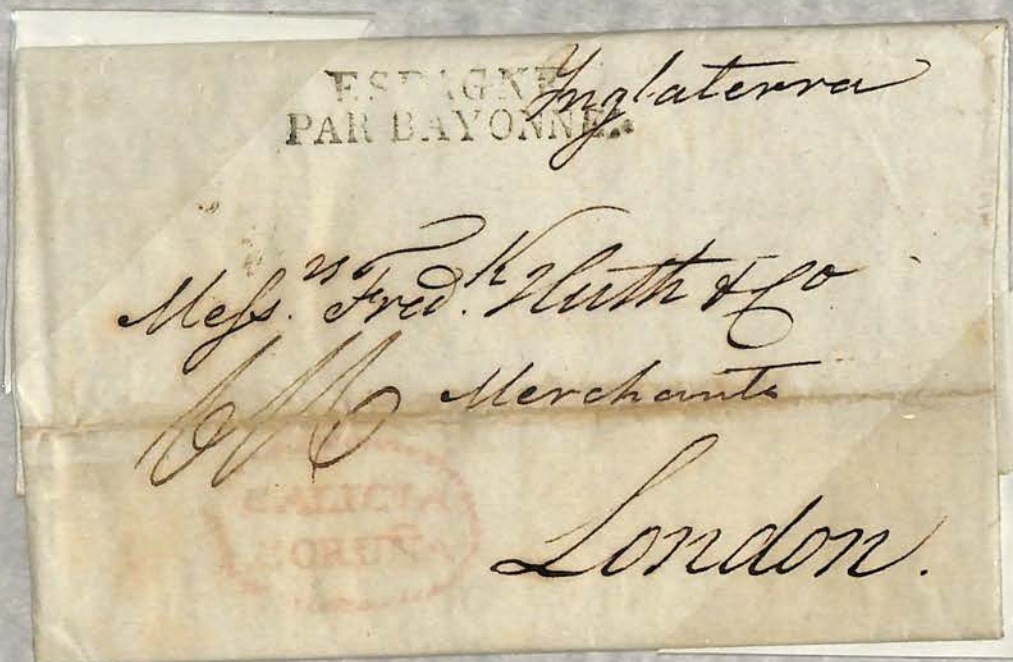 ESPAGNE
PAR BAYONNE.
Inglaterra
Mess.rs Fred.k Huth & Co
Merchants
London.
GALICIA
CORUÑA